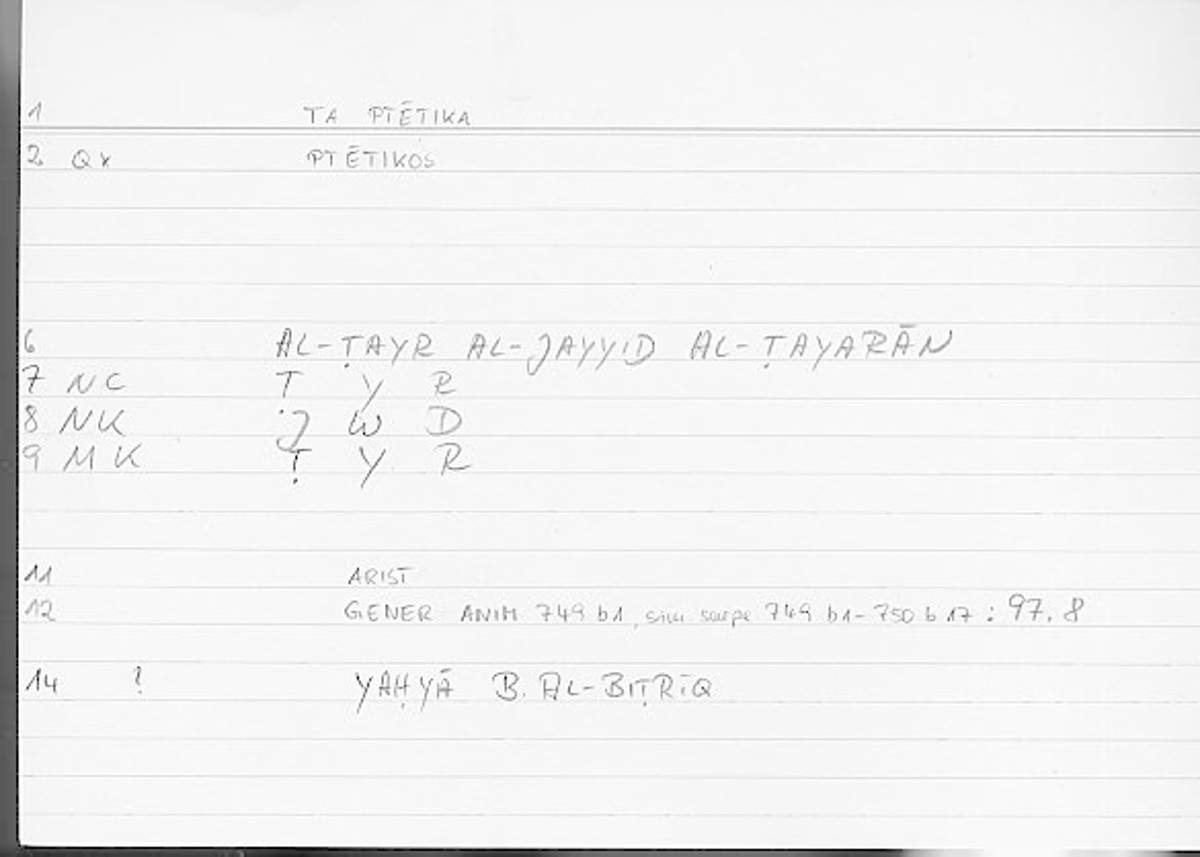 1 TA PTĒTIKA
2 Qx PTĒTIKOS
6 AL-ṬAYR AL-JAYYID AL-ṬAYARĀN
7 NC T Y R
8 NK J W D
9 MK Ṭ Y R
11 ARIST
12 GENER ANIM 749 b1, sim saepe 749 b1-750 b 17 : 97.8
14 ? YAḤYĀ B. AL-BIṬRĪQ